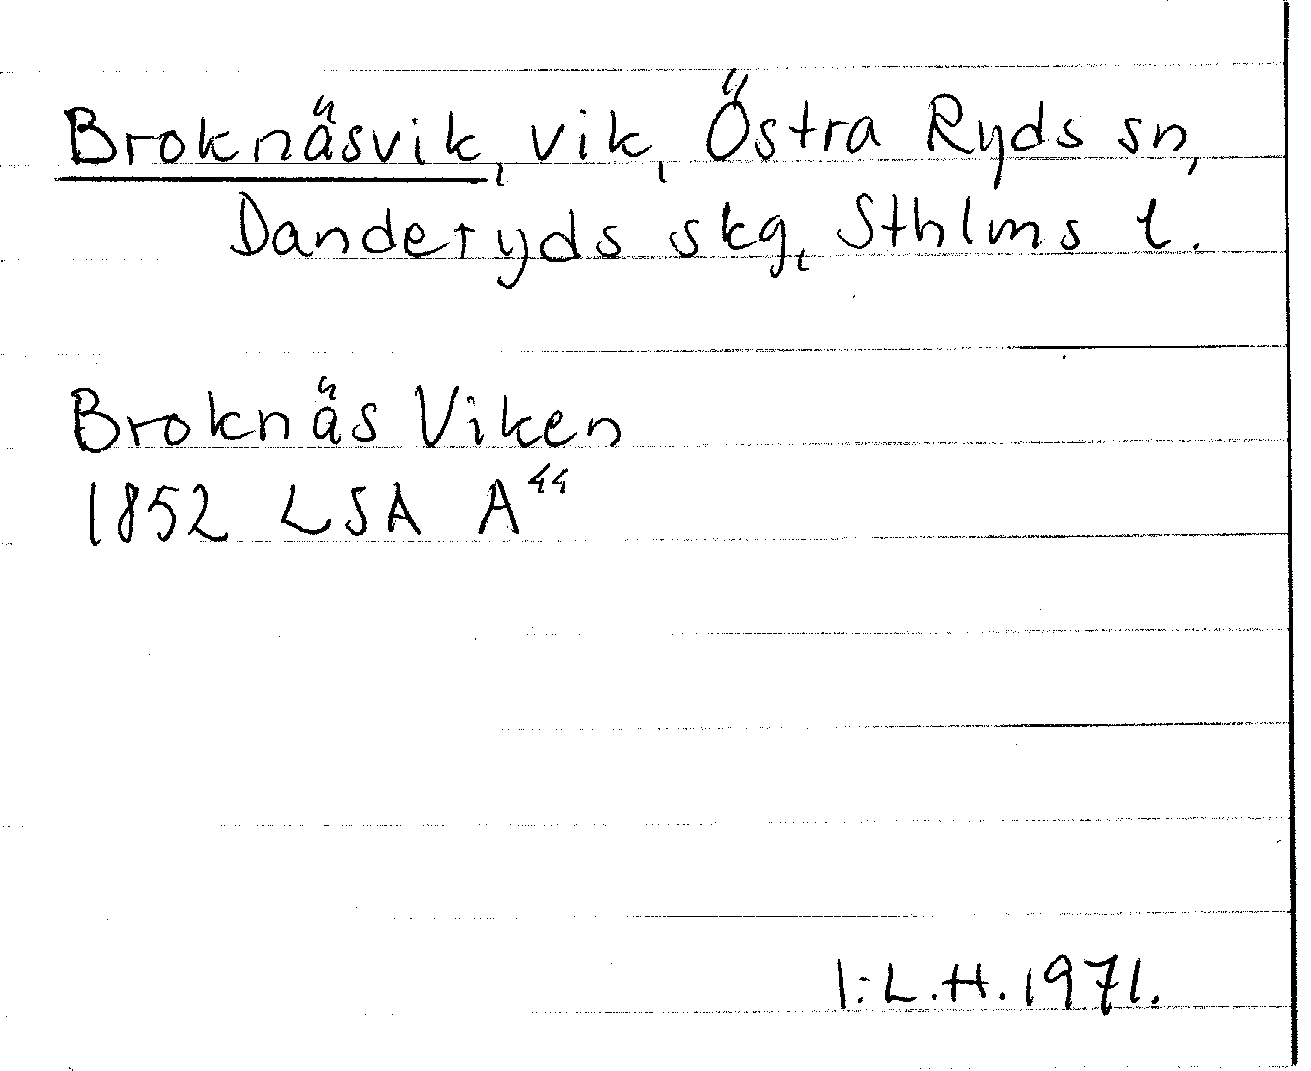 Broknäsvik, vik, Östra Ryds sn,
Danderyds skg, Sthlms l.
Broknäs Viken
1852 LSA A⁴⁴
I:L.H.1971.